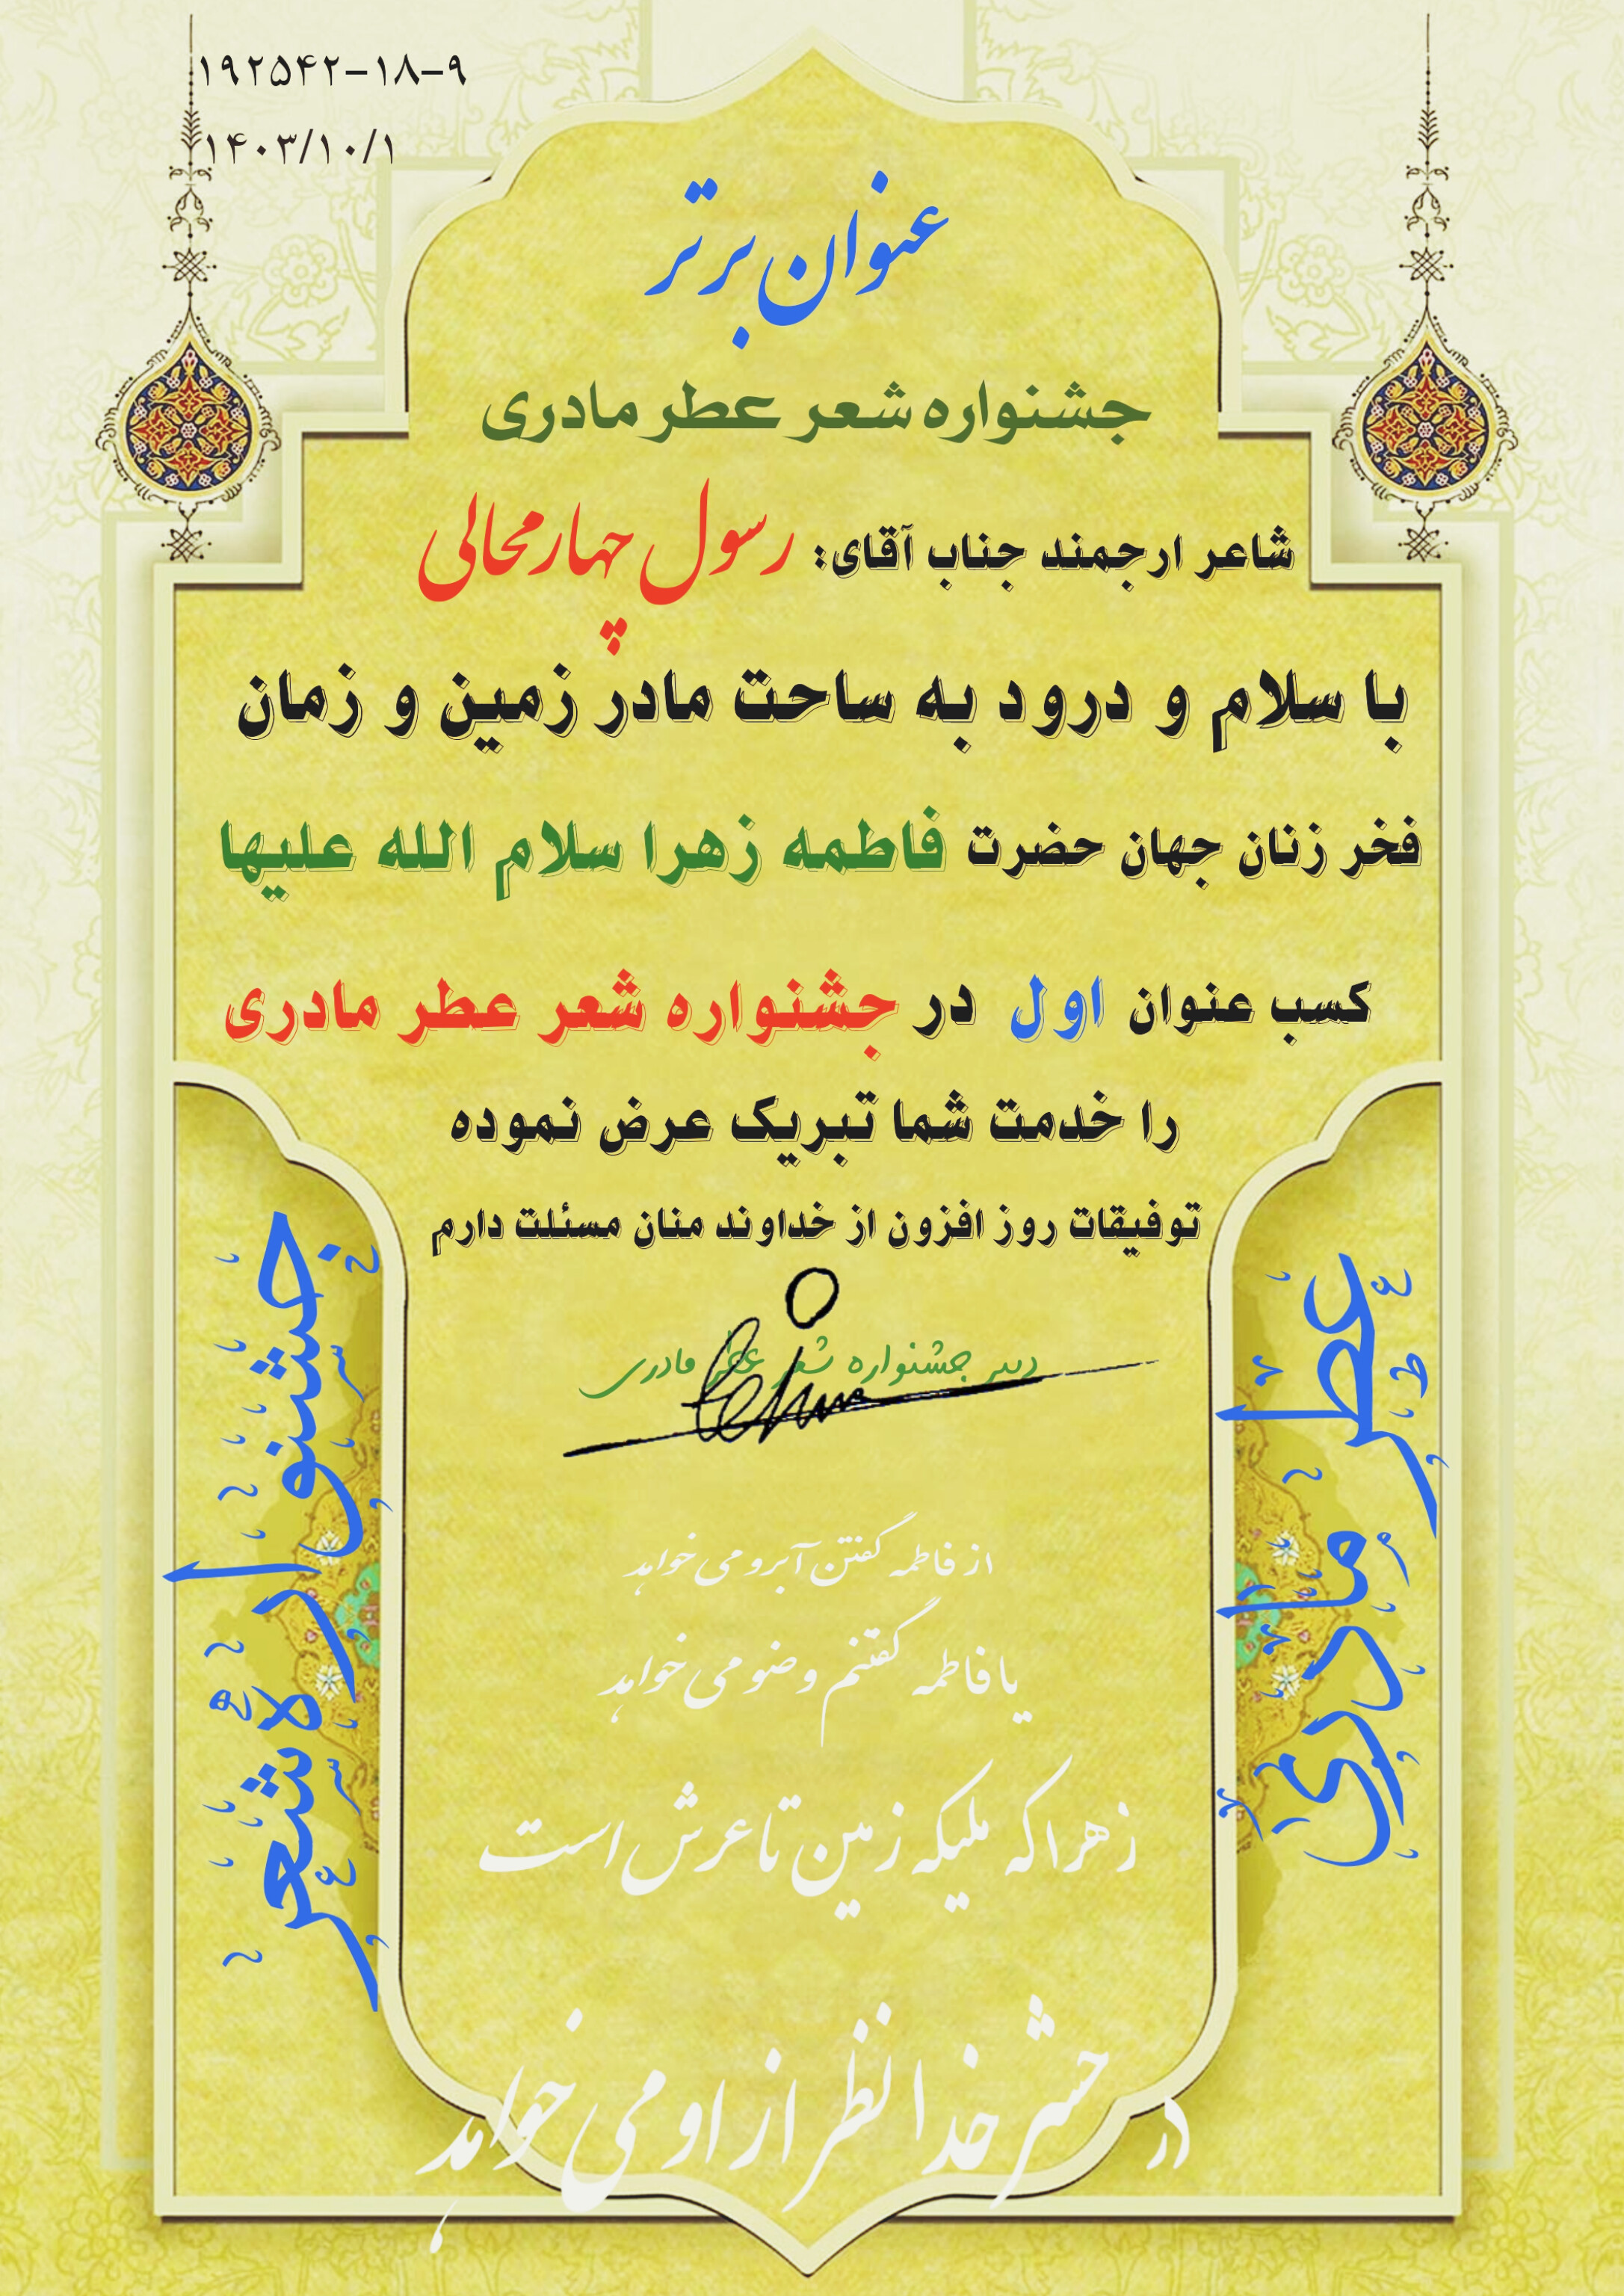 ۱۹۲۵۴۲-۱۸-۹
۱۴۰۳/۱۰/۱
عنوان برتر
جشنواره شعر عطر مادری
شاعر ارجمند جناب آقای: رسول چهارمحالی
با سلام و درود به ساحت مادر زمین و زمان
فخر زنان جهان حضرت فاطمه زهرا سلام الله علیها
کسب عنوان اول در جشنواره شعر عطر مادری
را خدمت شما تبریک عرض نموده
توفیقات روز افزون از خداوند منان مسئلت دارم
دبیر جشنواره شعر عطر مادری
از فاطمه گفتن آبرو می خواهد
یا فاطمه گفتنم وضو می خواهد
زهرا که ملیکه زمین تا عرش است
در حشر خدا نظر از او می خواهد
عطر مادری
جشنواره شعر